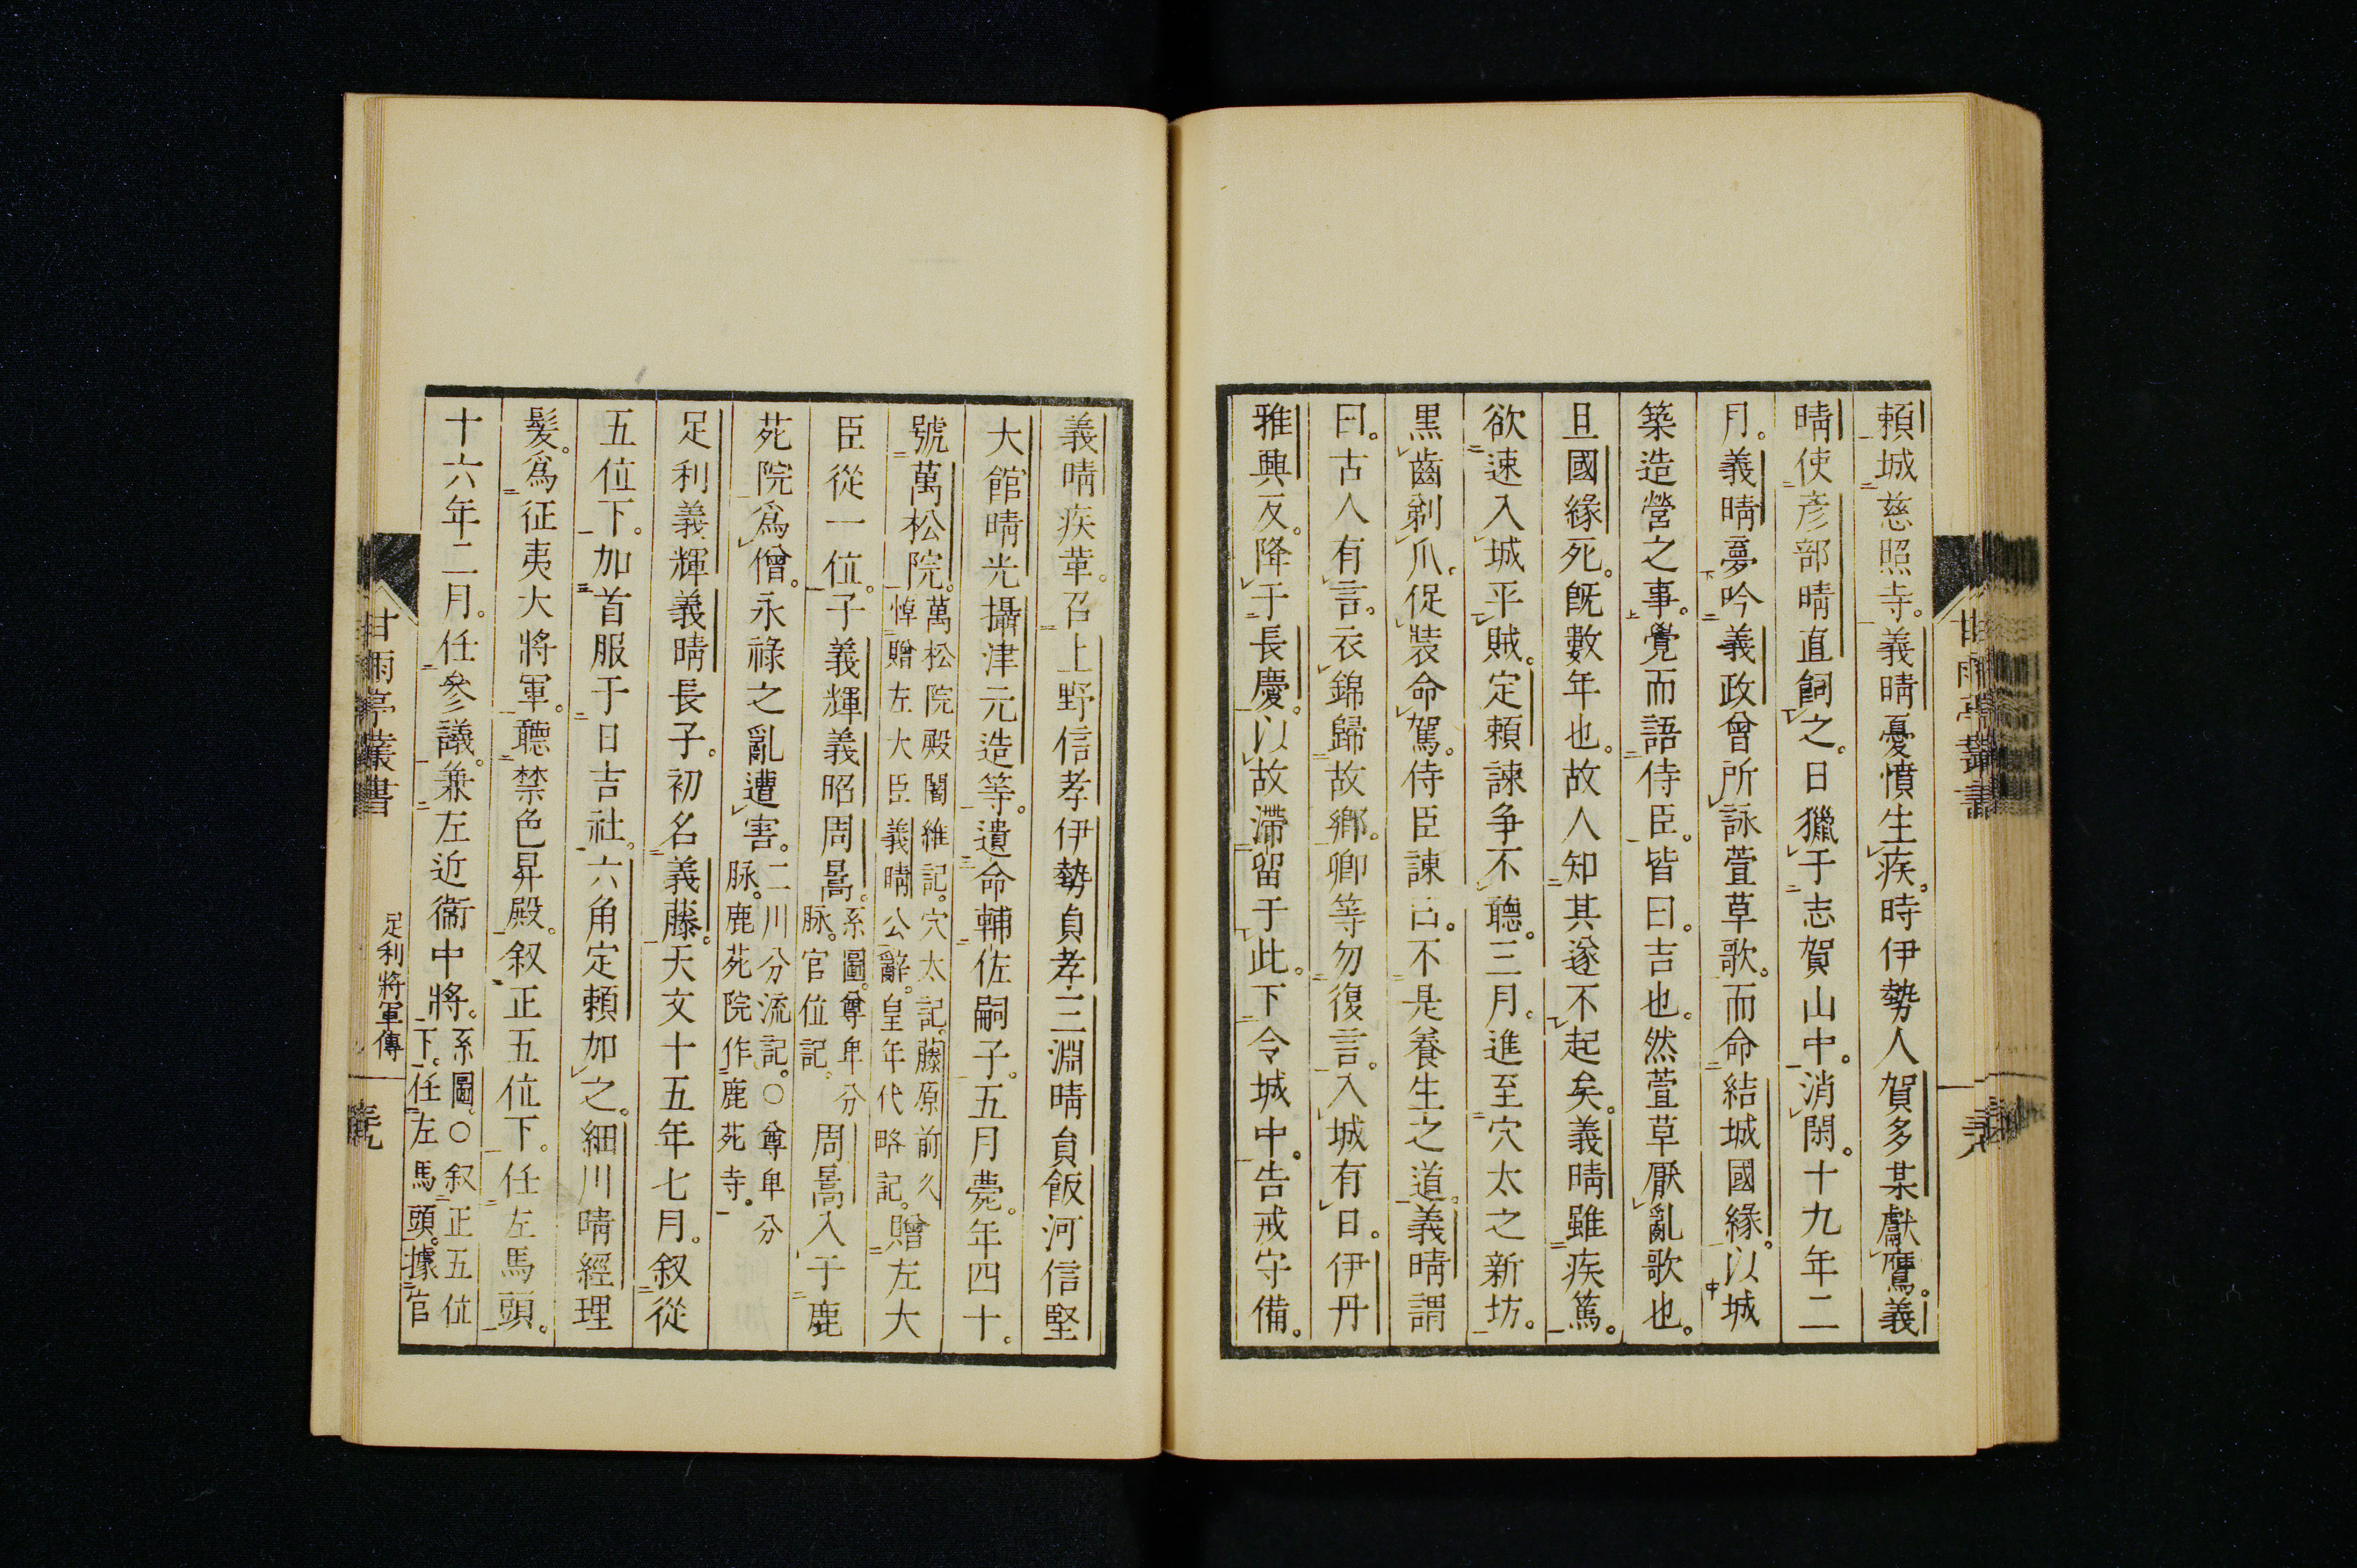 頼城慈照寺。義晴憂憤生疾。時伊勢人賀多某獻鷹。義
晴使彦部晴直飼之。日獵于志賀山中。消閑。十九年二
月。義晴夢吟義政曾所詠萱草歌。而命結城國緣。以城
築造營之事。覺而語侍臣。皆曰。吉也。然萱草厭亂歌也。
且國緣死。既數年也。故人知其遂不起矣。義晴雖疾篤。
欲速入城平賊。定頼諫争不聽。三月。進至穴太之新坊。
黒齒剃爪。促裝命駕。侍臣諫曰。不是養生之道。義晴謂
曰。古人有言。衣錦歸故鄉。卿等勿復言。入城有日。伊丹
雅興反。降于長慶。以故滯留于此。下令城中。告戒守備。
甘雨亭叢書
義晴疾革。召上野信孝伊勢貞孝三淵晴員飯河信堅
大館晴光攝津元造等。遺命輔佐嗣子。五月薨。年四十。
號萬松院。萬松院殿闍維記。穴太記。藤原前久
悼贈左大臣義晴公辭。皇年代略記。贈左大
臣從一位。子義輝義昭周暠。系圖。尊卑分
脉。官位記。周暠入于鹿
苑院為僧。永祿之亂遭害。二川分流記。○尊卑分
脉。鹿苑院作鹿苑寺。
足利義輝義晴長子。初名義藤。天文十五年七月。叙從
五位下。加首服于日吉社。六角定頼加之。細川晴經理
髮。為征夷大將軍。聽禁色昇殿。叙正五位下。任左馬頭。
十六年二月。任參議。兼左近衞中將。系圖。○叙正五位
下。任左馬頭。據官
甘雨亭叢書
足利將軍傳